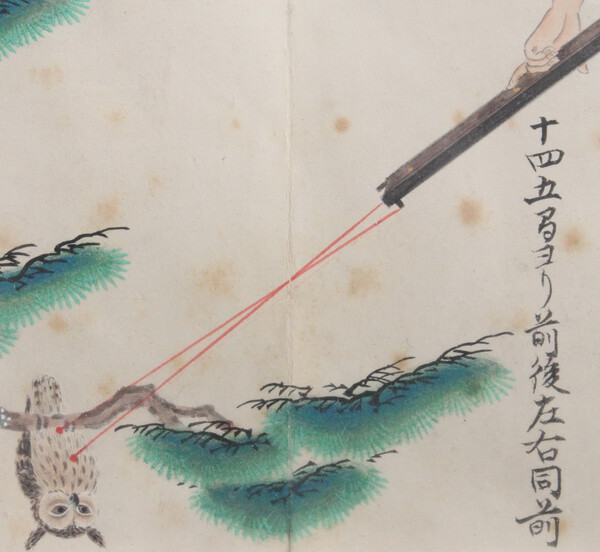 十四五間ヨリ前後左右同前